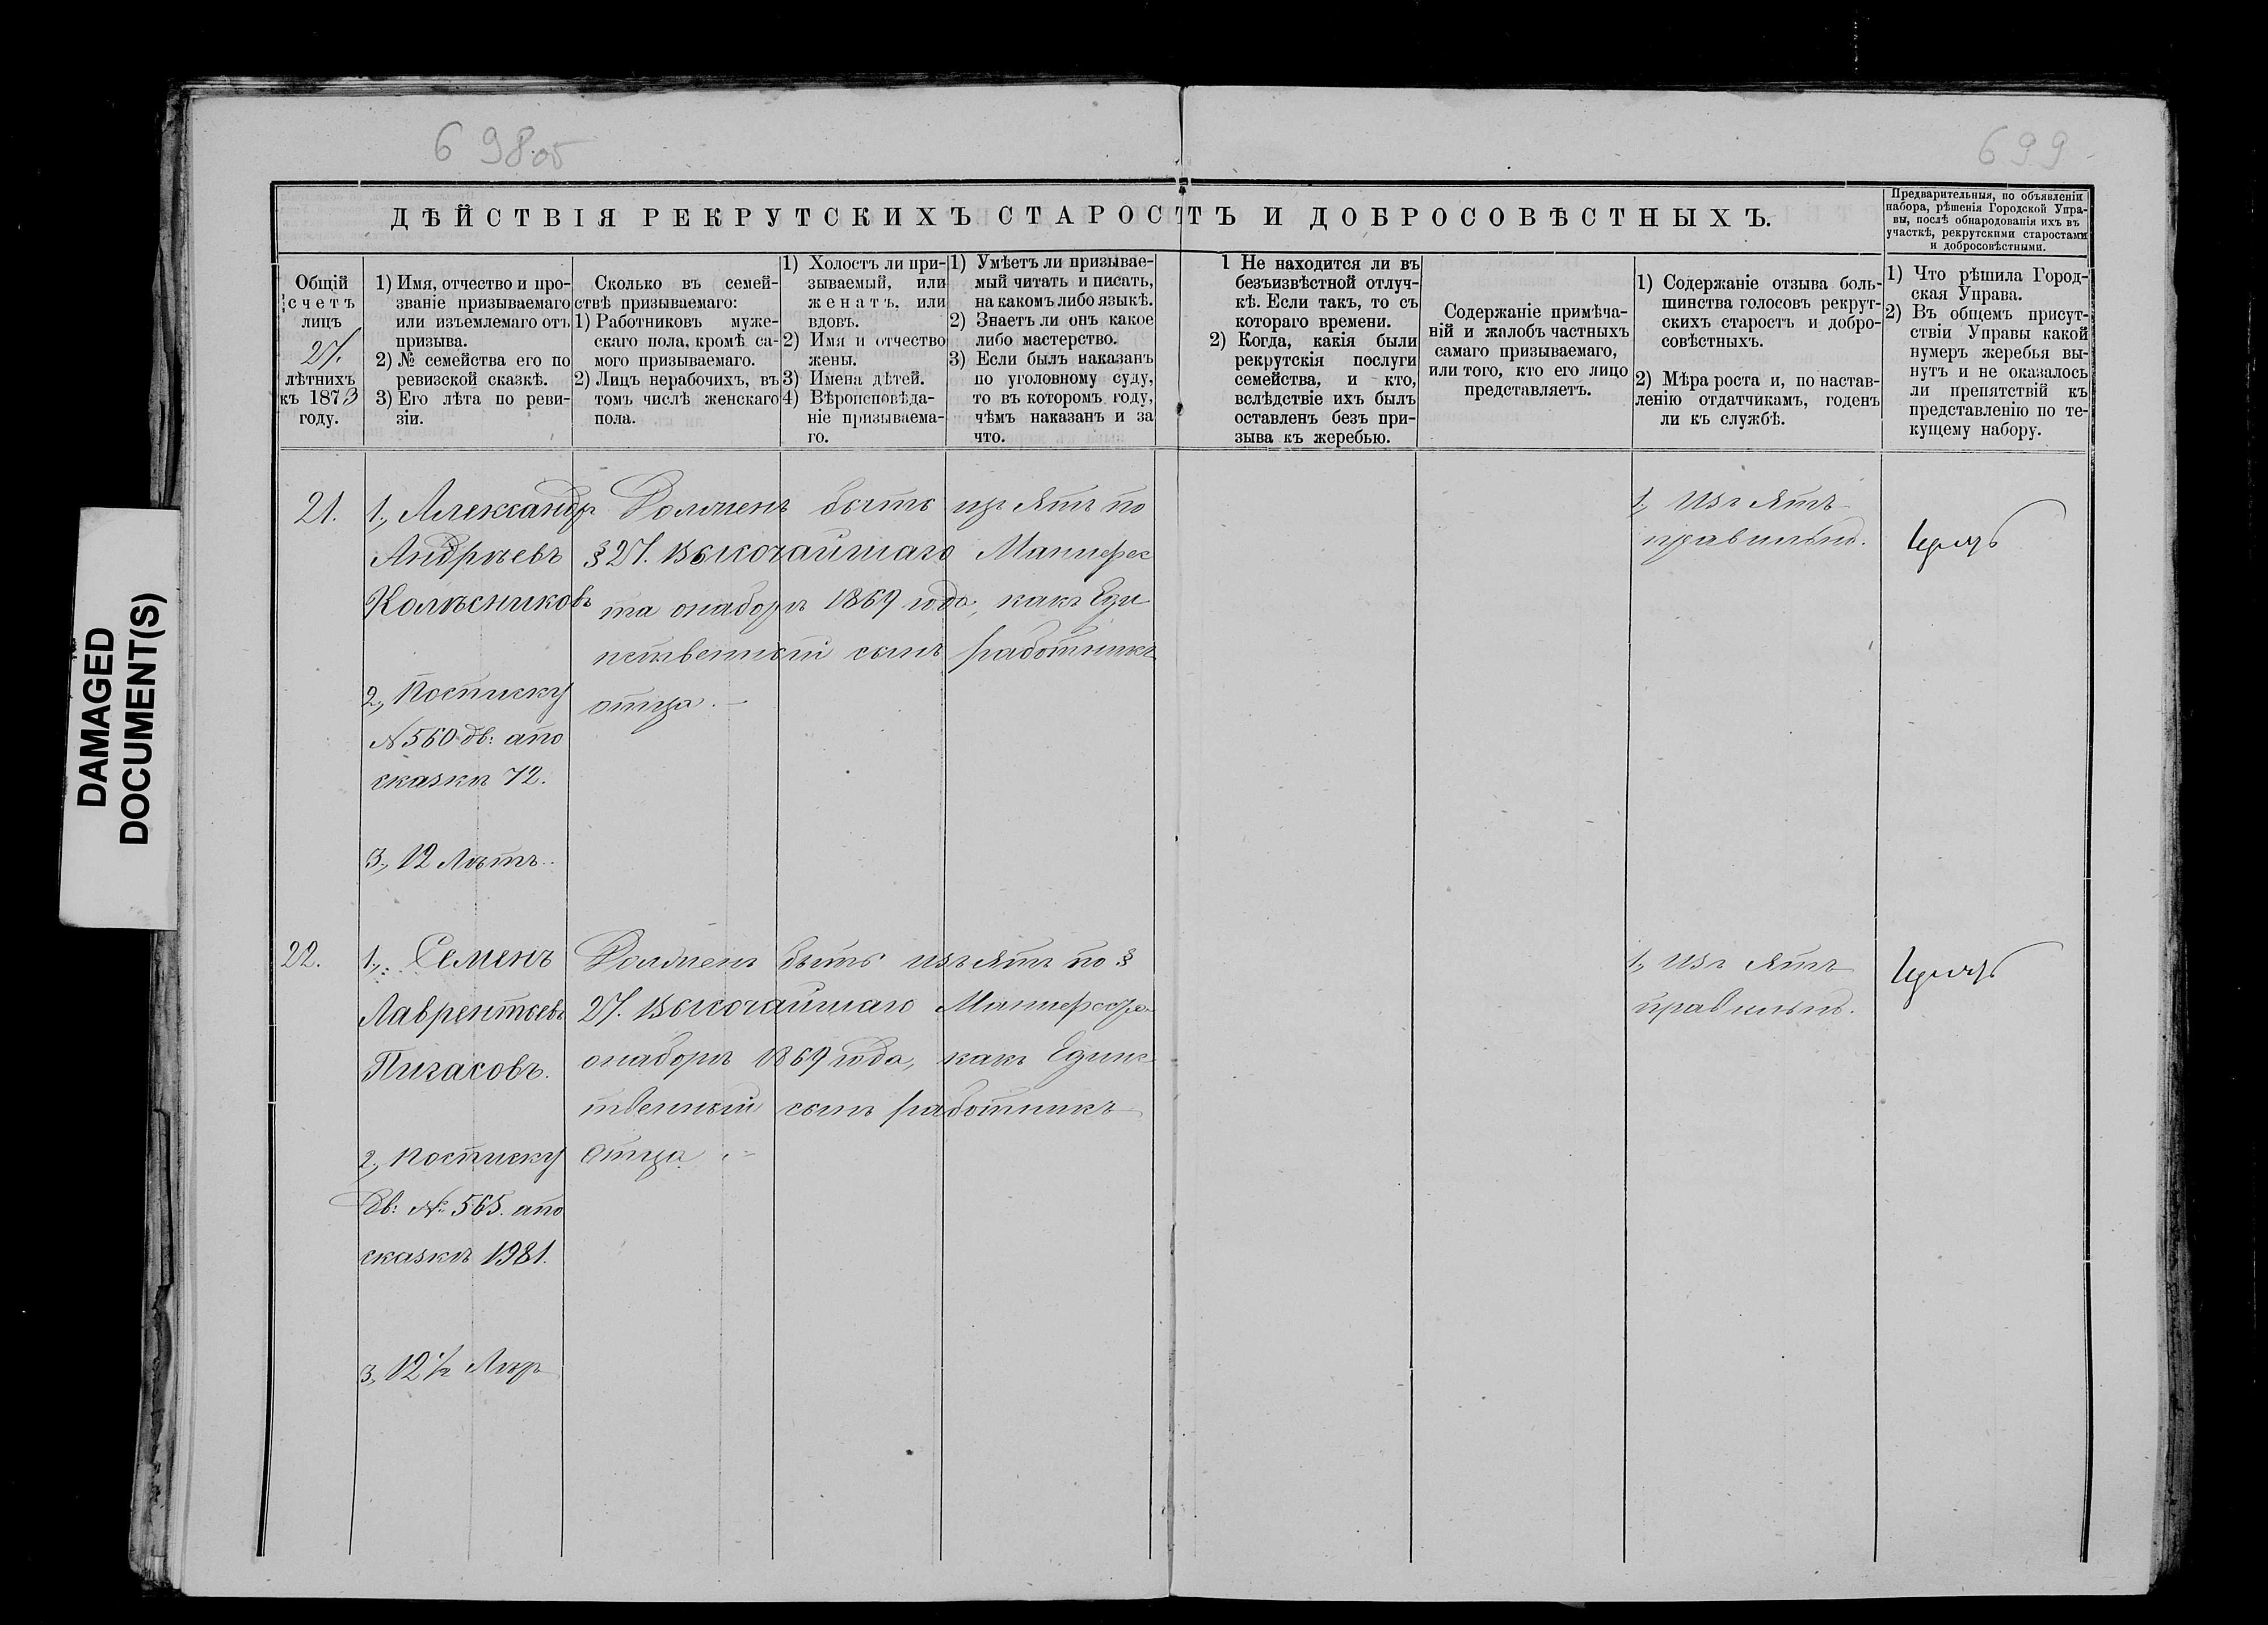 698об
699
DAMAGED
DOCUMENT(S)
ДѢЙСТВІЯ РЕКРУТСКИХЪ СТАРОСТЪ И ДОБРОСОВѢСТНЫХЪ.
Предварительныя, по объявленіи
набора, рѣшенія Городской Упра-
вы, послѣ обнародованія ихъ въ
участкѣ, рекрутскими старостами
и добросовѣстными.
Общій
счетъ
лицъ
27.
лѣтнихъ
къ 1873
году.
1) Имя, отчество и про-
званіе призываемаго
или изъемлемаго отъ
призыва.
2) № семейства его по
ревизской сказкѣ.
3) Его лѣта по реви-
зіи.
Сколько въ семей-
ствѣ призываемаго:
1) Работниковъ муже-
скаго пола, кромѣ са-
мого призываемаго.
2) Лицъ нерабочихъ, въ
томъ числѣ женскаго
пола.
1) Холостъ ли при-
зываемый, или
женатъ, или
вдовъ.
2) Имя и отчество
жены.
3) Имена дѣтей.
4) Вѣроисповѣда-
ніе призываема-
го.
1) Умѣетъ ли призывае-
мый читать и писать,
на какомъ либо языкѣ.
2) Знаетъ ли онъ какое
либо мастерство.
3) Если былъ наказанъ
по уголовному суду,
то въ которомъ году,
чѣмъ наказанъ и за
что.
1 Не находится ли въ
безъизвѣстной отлуч-
кѣ. Если такъ, то съ
котораго времени.
2) Когда, какія были
рекрутскія послуги
семейства, и кто,
вслѣдствіе ихъ былъ
оставленъ безъ при-
зыва къ жеребью.
Содержаніе примѣча-
ній и жалобъ частныхъ
самаго призываемаго,
или того, кто его лицо
представляетъ.
1) Содержаніе отзыва боль-
шинства голосовъ рекрут-
скихъ старостъ и добро-
совѣстныхъ.
2) Мѣра роста и, по настав-
ленію отдатчикамъ, годенъ
ли къ службѣ.
1) Что рѣшила Город-
ская Управа.
2) Въ общемъ присут-
ствіи Управы какой
нумеръ жеребья вы-
нутъ и не оказалось
ли препятствій къ
представленію по те-
кущему набору.
21.
1., Александр
Андрѣевъ
Колѣсниковъ
2., Посписку
N 560 дв: апо
сказкѣ 72.
3., 12 Лѣтъ.
Долженъ быть изъ ятъ по
§ 27. Высочайшаго Манифес
та онаборѣ 1869 года, какъ Еди
нственный сынъ работникъ
отца.
1, Изъ Ятъ
правильно.
22.
1., Семенъ
Лаврентьевъ
Пигасовъ.
2., Посписку
Дв: № 565. апо
сказкѣ 1981.
3., 12 ½ Лѣтъ
Долженъ быть изъ ятъ по §
27. Высочайшаго Манифеста
онаборѣ 1869 года, какъ Единс
твенный сынъ работникъ
отца.
1, Изъ Ятъ
правильно.